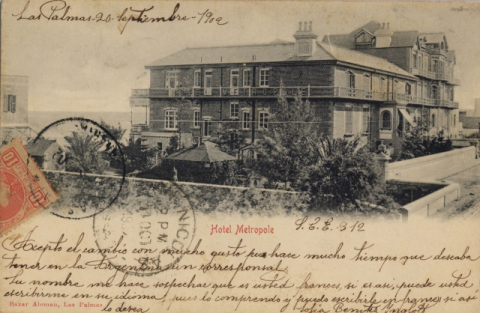 Las Palmas 20 Septiembre - 1902
10
Hotel Metropole
S.C.E. 312
Acepto el cambio con mucho gusto pues hace mucho tiempo que deseaba
tener en la Argentina un corresponsal
Tu nombre me hace sospechar que es usted frances, si es asi, puede usted
escribirme en su idioma, pues lo comprendo y puedo escribirle en frances si asi
Bazar Aleman, Las Palmas
lo desea
Benitez Inglott